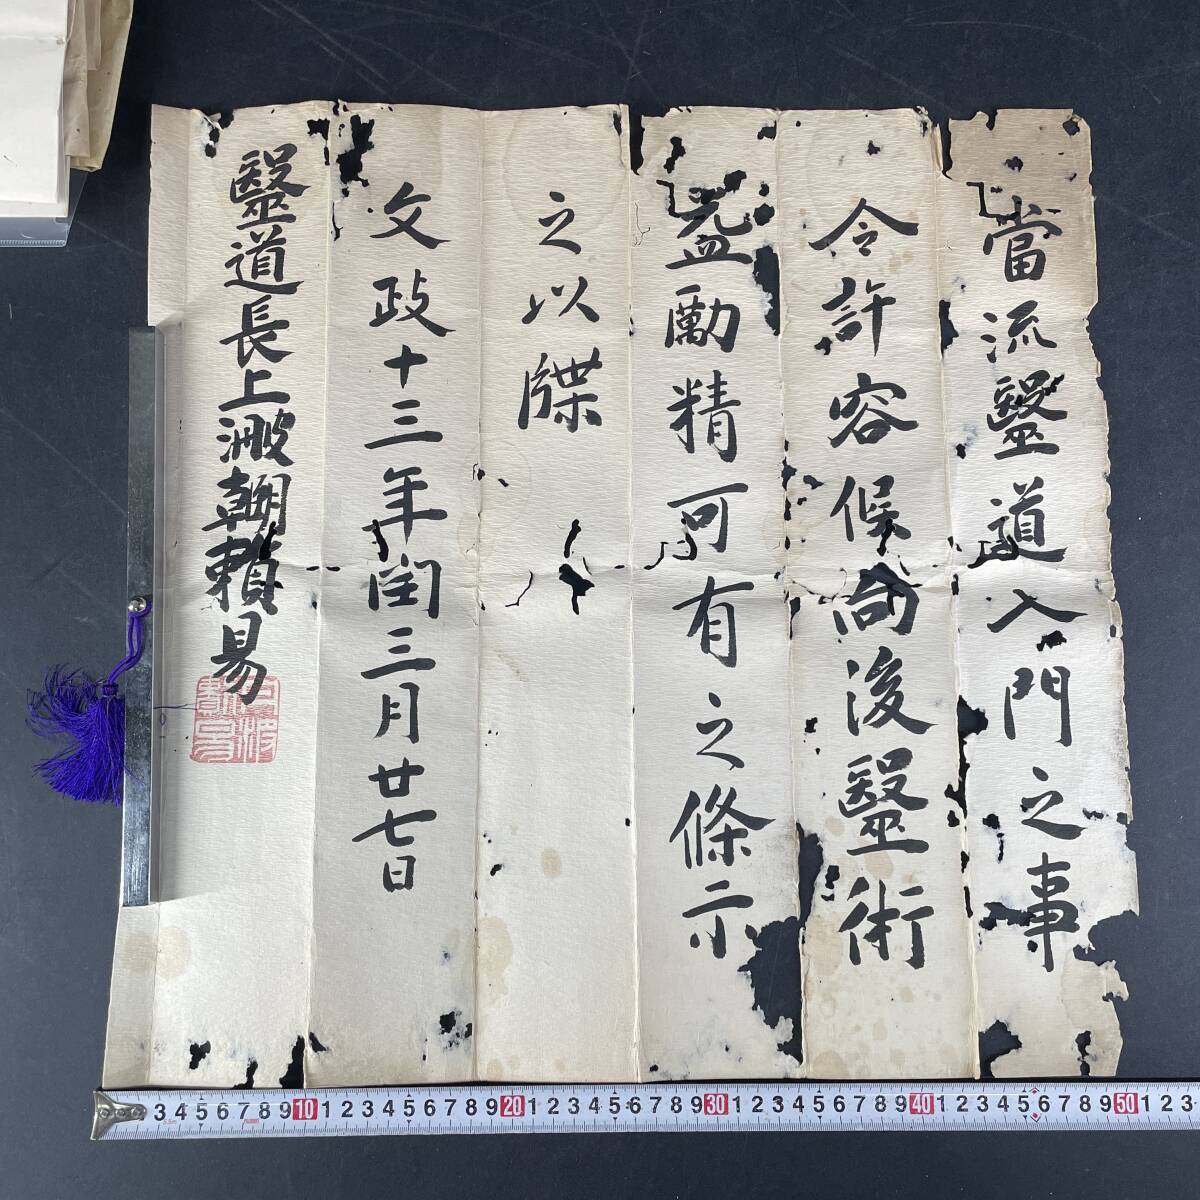 當流毉道入門之事
令許容候尚後毉術
益勵精可有之條示
之以牒
文政十三年閏三月廿七日
毉道長上丹波朝臣賴易
丹波賴易
3 4 5 6 7 8 9 10 1 2 3 4 5 6 7 8 9 20 1 2 3 4 5 6 7 8 9 30 1 2 3 4 5 6 7 8 9 40 1 2 3 4 5 6 7 8 9 50 1 2 3